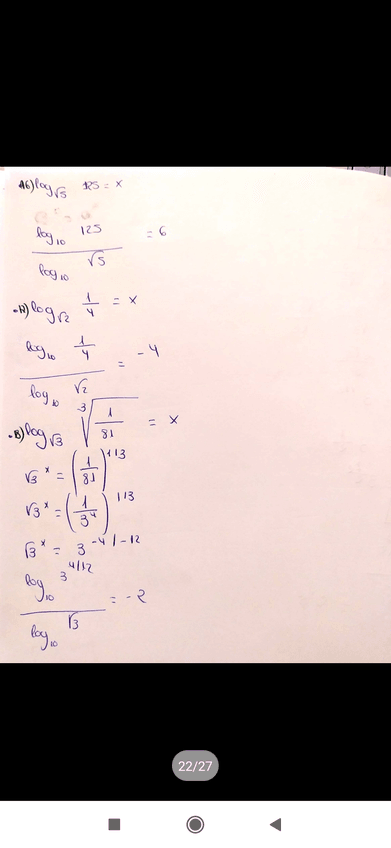 16) log√5 125 = x
log10 125 / log10 √5 = 6
17) log√2 1/4 = x
log10 1/4 / log10 √2 = -4
18) log√3 ∛(1/81) = x
√3^x = (1/81)^1/3
√3^x = (1/3^4)^1/3
√3^x = 3^-4/-12
log10 3^4/12 / log10 √3 = -2
22/27